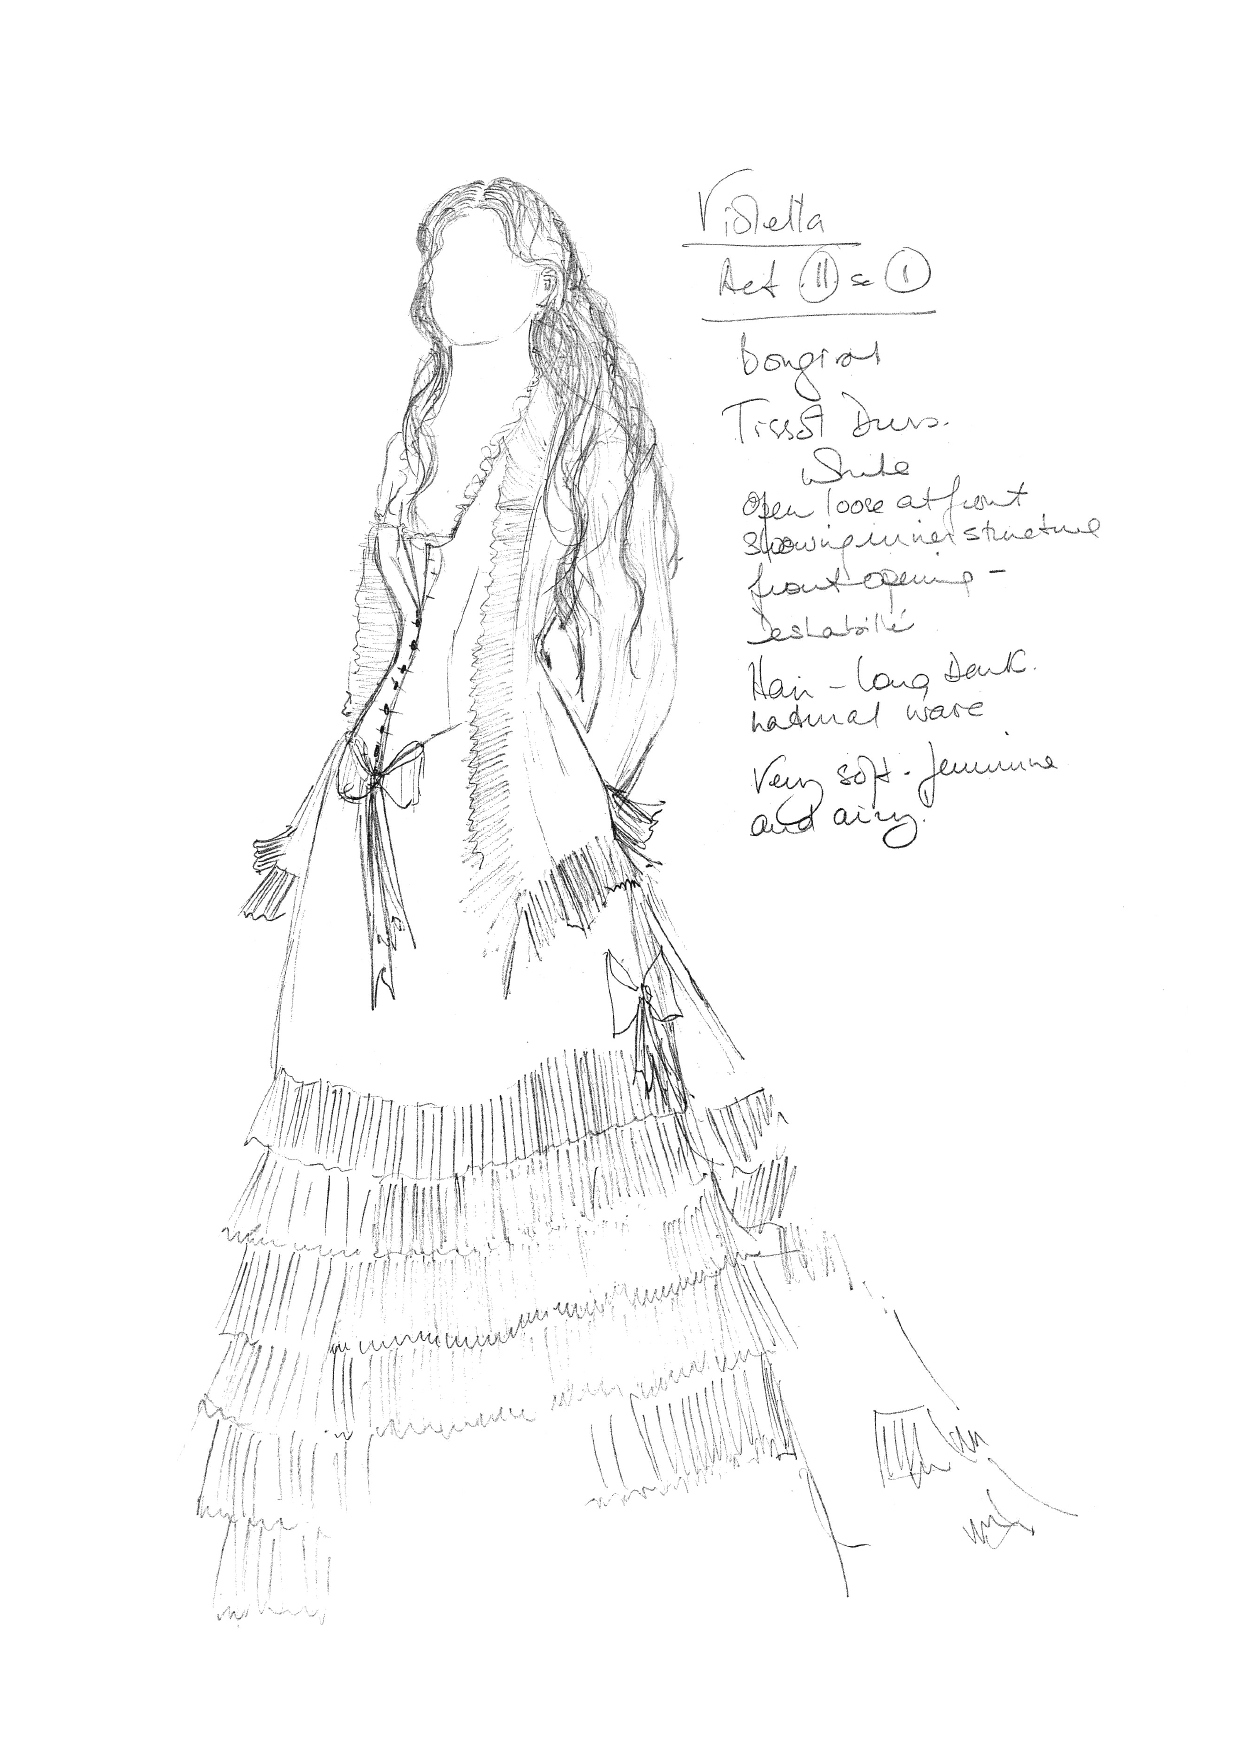 Violetta
Act II sc 1
Tissot Dress.
White
Open loose at front
showing inner structure
front opening –
Deshabillé
Hair – long Dark.
natural wave
Very soft - feminine
and airy.